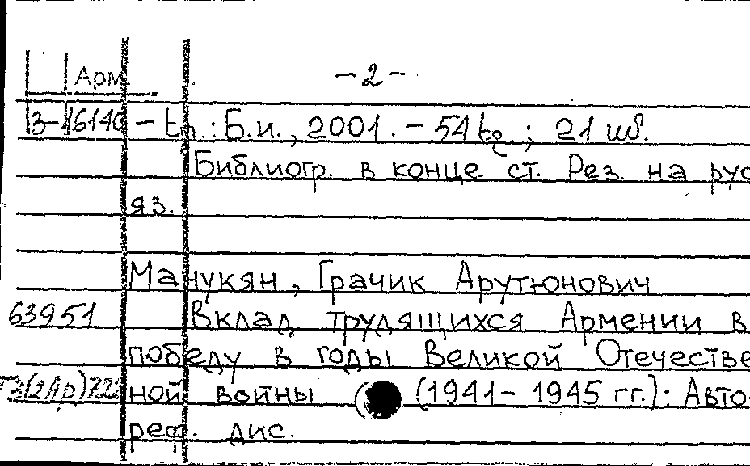 Арм -2-
3-16140 - Եր.: Б.и., 2001. - 54 էջ ; 21 սմ.
Библиогр. в конце ст. Рез. на рус
яз.
Манукян, Грачик Арутюнович
63951 Вклад трудящихся Армении в
победу в годы Великой Отечествен
ной войны (1941- 1945 гг.): Авто-
реф. дис.